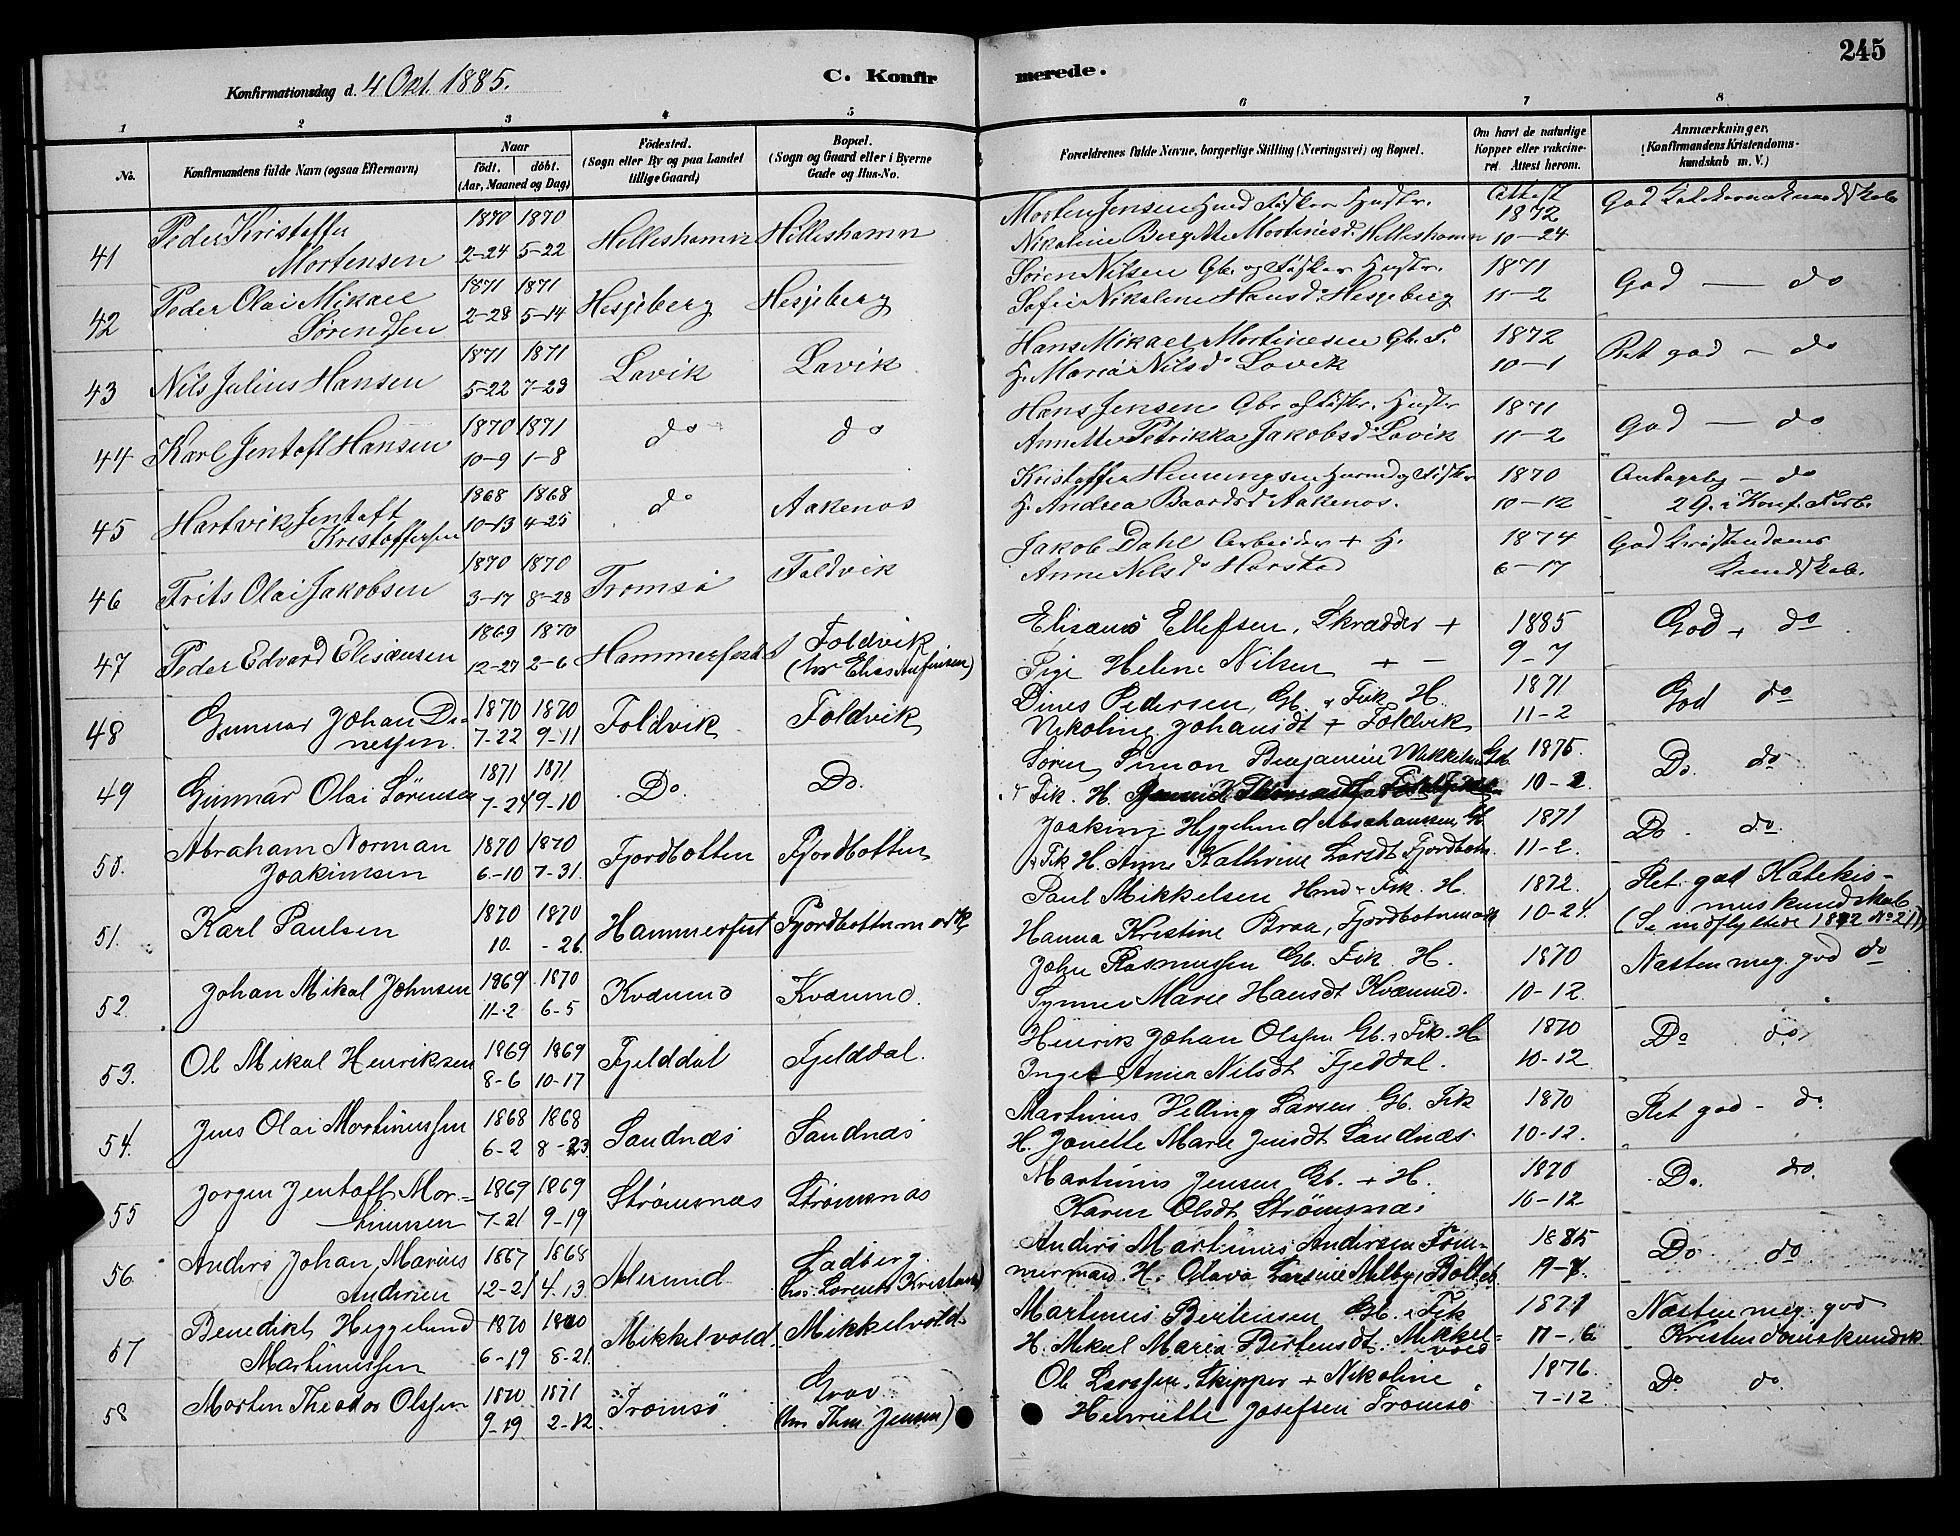 245
Konfirmationsdag d. 4 Okt. 1885.
C. Konfirmerede.
1 2 3 4 5 6 7 8
No. Konfirmandens fulde Navn (ogsaa Efternavn) Naar født. døbt. (Aar, Maaned og Dag) Födested. (Sogn eller By og paa Landet tillige Gaard) Bopæl. (Sogn og Gaard eller i Byerne Gade og Hus-No. Forældrenes fulde Navne, borgerlige Stilling (Næringsvei) og Bopæl. Om havt de naturlige Kopper eller vakcineret. Attest herom. Anmærkninger, (Konfirmandens Kristendomskundskab m. V.)
41 Peder Kristoffer Mortensen 1870 2-24 1870 5-22 Hilleshamn Hilleshamn Morten Jensen Husmd Fisker Hustr. Nikoline Bergitte Mortinesd. Hilleshamn Attest 1872 10-24 God
42 Peder Olai Mikael Sørendsen 1871 2-28 1871 5-14 Hesjeberg Hesjeberg Sören Nilsen Gbr. og Fisker Hustr. Sofie Nikoline Hansd. Hesjeberg 1871 11-2 God — do
43 Nils Julius Hansen 1871 5-22 1871 7-23 Lavik Lavik Hans Mikael Mortinesen Gb. F. H. Maria Nilsd. Lavik 1872 10-1 Ret god - do
44 Karl Jentoft Hansen 1870 10-9 1871 1-8 do do Hans Jensen Gbr. og Fiskr. Hustr Annette Petrikka Jakobsd Lavik 1871 11-2 God — do
45 Hartvik Jentoft Kristoffersen 1868 10-13 1868 4-25 do Aakenes Kristoffer Henningsen Husmd og Fisker H. Andrea Baardsd Aakenes. 1870 10-12 Antagelig - do 2 G. i Konf. Forb.
46 Frits Olai Jakobsen 1870 3-17 1870 8-28 Tromsö Foldvik Jakob Dahl Arbeider + H. Anne Nilsd Harstad 1874 6-17 God Kristendoms Kundskab.
47 Peder Edvard Elisæusen 1869 12-27 1870 2-6 Hammerfest Foldvik (hos Elias Anfinsen) Elisæus Ellefsen, Skrædder + Pige Helene Nilsen + - 1885 9-7 God + do
48 Gunnar Johan Dinessen 1870 7-22 1870 9-11 Foldvik Foldvik Dines Pedersen, Gb. + Fisk. H. Nikoline Johansdt + Foldvik 1871 11-2 God do
49 Gunnar Olai Sörensen 1871 7-24 1871 9-10 Do. Do. Sören Simon Benjamin Mikkelsen Gb. + Fik. H. 1875. 10-2. Do. do
50. Abraham Norman Joakimsen 1870 6-10 1870 7-31. Fjordbotten Fjordbotten Joakim Heggelund Abrahamsen Gb. + Fik H. Anne Kathrine Larsdt Fjordbotn. 1871 11-2. Do. do.
51. Karl Paulsen 1870 10. 1870 - 26 Hammerfest Fjordbottenmark Paul Mikkelsen Hmd + Fik. H. Hanna Kristine Braa, Fjordbotnmark 1872. 10-24. Ret god Katekismuskundskab (Se indflyttede 1882 No 21)
52. Johan Mikal Johnsen 1869 11-2 1870 6-5 Kvæund Kvæund. John Rasmussen Gb. Fik. H. Synnev Marie Hansdt Kvæund. 1870 10-12. Næsten meg. god do
53. Ol Mikal Henriksen 1869 8-6 1869 10-17 Fjelddal Fjelddal. Henrik Johan Olsen Gb. + Fik. H Inger Anna Nilsdt Fjeddal. 1870 10-12. Do do
54. Jens Olai Mortinussen 1868 6-2 1868 8-23. Sandnæs Sandnæs Martinus Heding Larsen Gb. Fik H. Janette Marie Jensdt Sandnæs. 1870 10-12. Ret god - do
55 Jørgen Jentoft Mortinussen 1869 7-21 1869 9-19 Strømsnæs Strømsnæs Martinus Jensen Gb. + H. Karen Olsdt Strømsnæs 1870 10-12. Do. do.
56. Anders Johan Marius Andersen 1867 12-21 1868 4. 13. Ladberg hos Lorents Kristians) Anders Martinus Andersen Tömmermand H. Olava 1885 9-7. Do do
57 Benedikt Heggelund Martinussen 1870 6-19 1870 8-21. Mikkelvold. Mikkelvold. Martinus Bertensen Gb. + Fik H. Mikal Maria Bertensdt. Mikkelvold 1871 11-16 Næsten meg. god Kristendomskundsk
58 Morten Theodor Olsen 1870 9-19 1871 2-12. Tromsö Grov (hos Thm. Jensen) Ol Larssen, Skipper + Nikoline Henriette Josefsen Tromsö 1876. 7-12. Do. do.